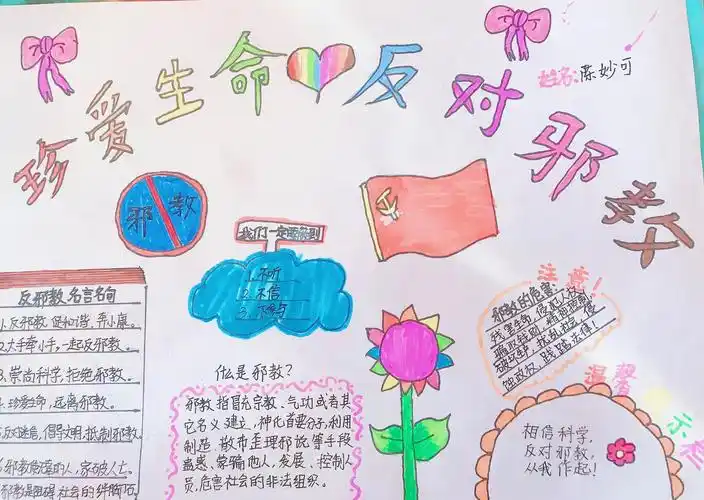 珍爱生命反对邪教
姓名:陈妙可
邪教
我们一定要做到
1. 不听
2. 不信
3. 不传
反邪教名言名句
1.反邪教 促和谐、奔小康。
2.大手牵小手,一起反邪教。
3.崇尚科学,拒绝邪教。
4.珍爱生命,远离邪教。
倡导文明,抵制邪教
家破人亡。
社会的绊脚石
什么是邪教?
邪教指冒充宗教、气功或者其
它名义建立,神化首要分子,利用
制造、散布歪理邪说等手段
蛊惑、蒙骗他人,发展、控制人
员,危害社会的非法组织。
注意!
邪教的危害:
残害生命,侵犯人权,
骗取钱财,
破坏
践踏法律!
温馨提示栏
相信科学,
反对邪教,
从我作起!